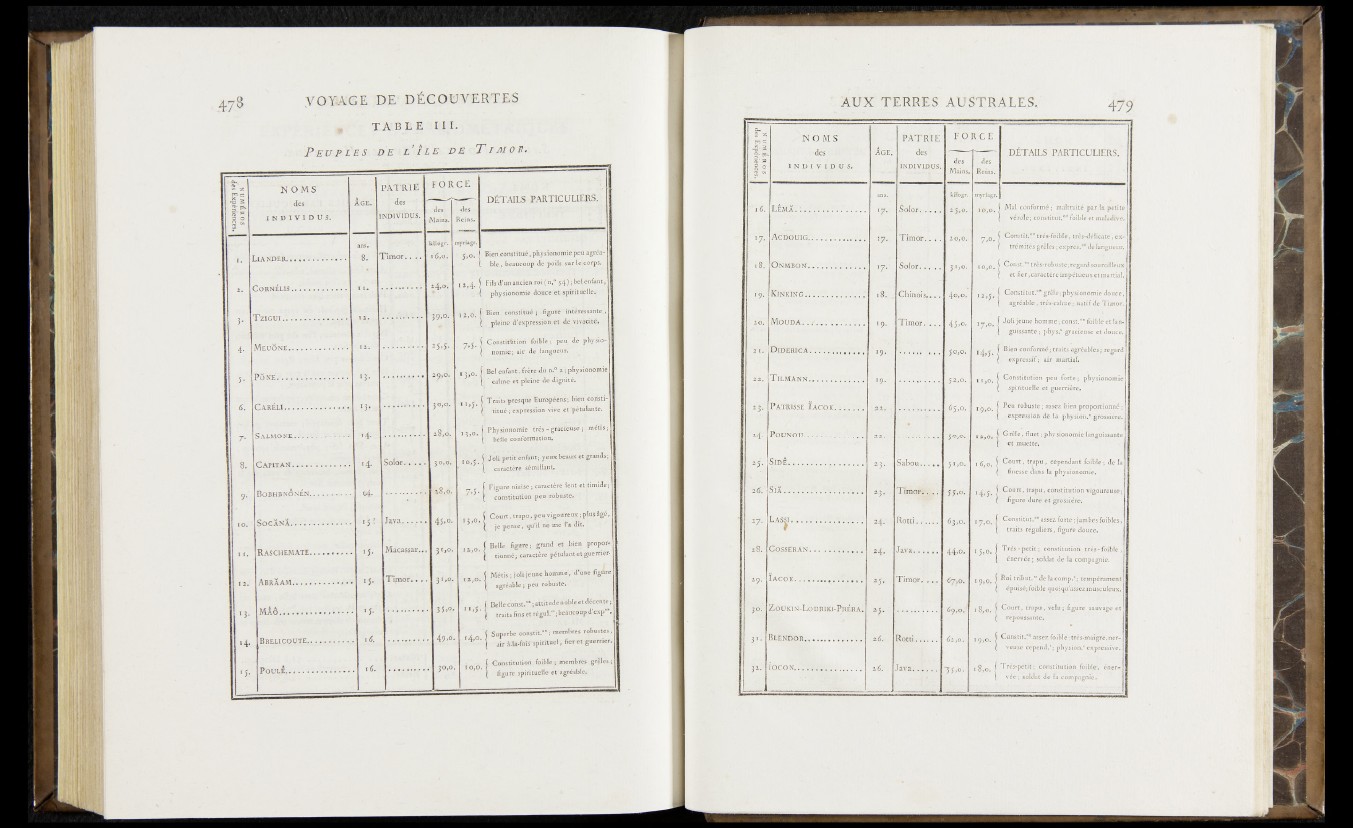 478 VOYAGE DE DÉCOUVERTES
TABLE III.
PEUPLES DE L'ÎLE DE TIMOR.
NUMÉROS des Expériences. NOMS des INDIVIDUS. ÂGE. PATRIE des INDIVIDUS. FORCE des Mains. des Reins. DÉTAILS PARTICULIERS.
ans. kilogr. myriagr.
1. LIANDER 8. Timor.... 16,0. 5,0. Bien constitué, physionomie peu agréa-
ble, beaucoup de poils sur le corps.
2. CORNÉLIS 11. 24,0. 12,4. Fils d'un ancien roi (n.° 54); bel enfant,
physionomie douce et spirituelle.
3. TZIGUI 12. 39,0. 12,0. Bien constitué; figure intéressante,
pleine d'expression et de vivacité.
4. MEUÔNE 12. 25,5. 7,5. Constitution foible; peu de physio-
nomie; air de langueur.
5. PÔNE 13. 29,0. 13,0. Bel enfant, frère du n.° 2; physionomie
calme et pleine de dignité.
6. CARÉLI 13. 30,0. 11,5. Traits presque Européens; bien consti-
titué; expression vive et pétulante.
7. SALMONE 14. 28,0. 13,0. Physionomie très-gracieuse; métis;
belle conformation.
8. CAPITAN 14. Solor..... 30,0. 10,5. Joli petit enfant; yeux beaux et grands;
caractère sémillant.
9. BOBHENÔNÉN 14. 28,0. 7,5. Figure niaise; caractère lent et timide;
constitution peu robuste.
10. SOCÄNÄ 15? Java...... 45,0. 15,0. Court, trapu, peu vigoureux; plus âgé,
je pense, qu'il ne me l'a dit.
11. RASCHEMATE 15. Macassar... 31,0. 12,0. Belle figure; grand et bien propor-
tionné; caractère pétulant et guerrier.
12. ABRÄAM 15. Timor.... 31,0. 12,0. Métis; joli jeune homme, d'une figure
agréable; peu robuste.
13. MÂÔ 15. 35,0. 11,5. Belle const.on; attitude noble et décente;
traits fins et régul.rs; beaucoup d'exp.on.
14. BBELICOUTE 16. 49,0. 14,0. Superbe constit.on; membres robustes,
air à-la-fois spirituel, fier et guerrier.
15. POULÊ 16. 30,0. 10,0. Constitution foible; membres grêles;
figure spirituelle et agréable.
AUX TERRES AUSTRALES. 479
NUMÉROS des Expériences. NOMS des INDIVIDUS. ÂGE. PATRIE des INDIVIDUS. FORCE des Mains. des Reins. DÉTAILS PARTICULIERS.
ans. kilogr. myriagr.
16. LÉMÄ 17. Solor..... 23,0. 10,0. Mal conformé; maltraité par la petite
vérole; constitut.on foible et maladive.
17. ACDOUIG 17. Timor.... 20,0. 7,0. Constit.on très-foible, très-délicate, ex-
trémités grêles; expres.on de langueur.
18. ONMBON 17. Solor..... 31,0. 10,0. Const.on très-robuste; regard sourcilleux
et fier, caractère impétueux et martial.
19. KINKING 18. Chinois.... 40,0. 12,5. Constitut.on grêle; physionomie douce,
agréable, très-calme; natif de Timor.
20. MOUDA 19. Timor.... 45,0. 17,0. Joli jeune homme; const.on foible et lan-
guissante; phys.e gracieuse et douce.
21. DIDERICA 19. 50,0. 14,5. Bien conformé; traits agréables; regard
expressif; air martial.
22. TILMANN 19. 52,0. 11,0. Constitution peu forte; physionomie
spirituelle et guerrière.
23. PATRISSE ÏACOK 22. 65,0. 19,0. Peu robuste; assez bien proportionné;
expression de la physion.e grossière.
24. POUNOÜ 22. 50,0. 12,0. Grêle, fluet; physionomie languissante
et muette.
25. SIDÊ 23. Sabou..... 51,0. 16,0. Court, trapu, cependant foible; de la
finesse dans la physionomie.
26. SIÄ 23. Timor.... 55,0. 14,5. Court, trapu, constitution vigoureuse;
figure dure et grossière.
27. LASSI 24. Rotti..... 63,0. 17,0. Constitut.on assez forte; jambes foibles,
traits réguliers, figure douce.
28. GOSSERAN 24. Java...... 44,0. 15,0. Très-petit; constitution très-foible,
énervée; soldat de la compagnie.
29. ÏACOK 25. Timor.... 67,0. 19,0. tempérament
épuisé, foible quoiqu'assez musculeux.
30. ZOUKIN-LODRIKI-PHÉRA. 25. 69,0. 18,0. Court, trapu, velu; figure sauvage et
repoussante.
31. BLENDOR 26. Rotti..... 61,0. 19,0. Constit.on assez foible, très-maigre, ner-
veuse cepend.t; physion.e expressive.
32. ÏOCON 26. Java...... 35,0. 18,0. Très-petit; constitution foible, éner-
vée; soldat de la compagnie.